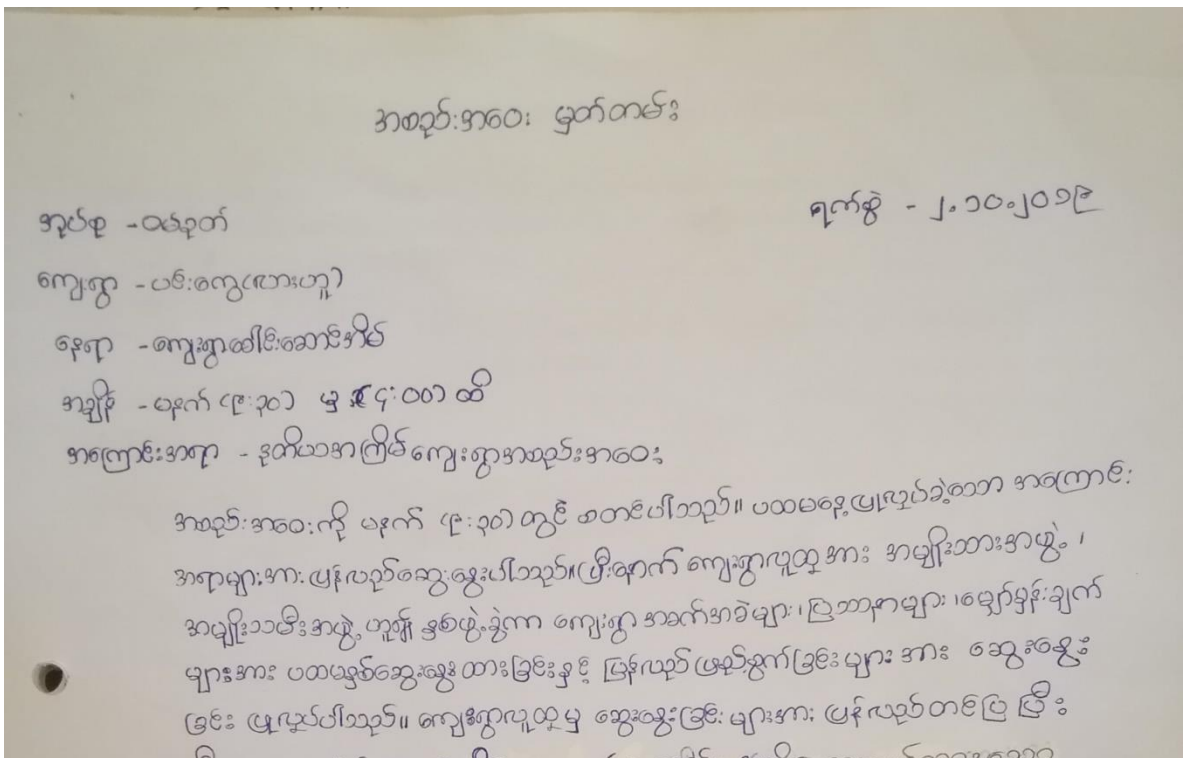 အစည်းအဝေး မှတ်တမ်း
ရက်စွဲ - ၂.၁၀.၂၀၁၉
အုပ်စု - ဝမ်နုတ်
ကျေးရွာ - ပင်းကွေ(လားဟူ)
နေရာ - ကျေးရွာခေါင်းဆောင်အိမ်
အချိန် - မနက် (၉:၃၀) မှ (၄:၀၀) ထိ
အကြောင်းအရာ - ဒုတိယအကြိမ်ကျေးရွာအစည်းအဝေး
အစည်းအဝေးကို မနက် (၉:၃၀) တွင် စတင်ပါသည်။ ပထမနေ့ပြုလုပ်ခဲ့သော အကြောင်း
အရာများအား ပြန်လည်ဆွေးနွေးပါသည်။ ပြီးနောက် ကျေးရွာလူထုအား အမျိုးသားအဖွဲ့ ၊
အမျိုးသမီးအဖွဲ့ ဟူ၍ နှစ်ဖွဲ့ခွဲကာ ကျေးရွာ အခက်အခဲများ ၊ ပြဿနာများ ၊ မျှော်မှန်းချက်
များအား ပထမနှစ်ဆွေးနွေးထားခြင်းနှင့် ပြန်လည် ဖြည့်စွက်ခြင်းများ အား ဆွေးနွေး
ခြင်း ပြုလုပ်ပါသည်။ ကျေးရွာလူထုမှ ဆွေးနွေးခြင်း များအား ပြန်လည်တင်ပြ ပြီး